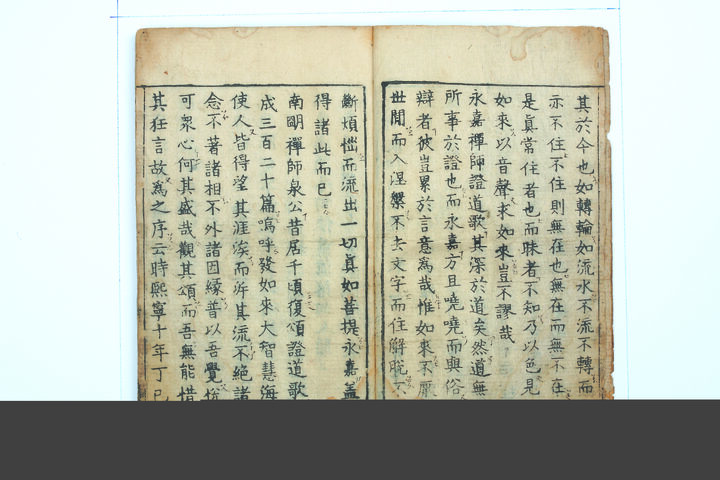 其於今也如轉輪如流水不流不轉而
亦不住不住則無在也無在而無不在
是眞常住者也而昧者不知乃以色見
如來以音聲求如來豈不謬哉
永嘉禪師證道歌其深於道矣然道無
所事於證也而永嘉方且嘵嘵而與俗
辯者彼豈累於言意爲哉惟如來不厭
世間而入涅槃不去文字而住解脫
斷煩惱而流出一切眞如菩提永嘉盖
得諸此而已
南明禪師泉公昔居千頃復頌證道歌
成三百二十篇嗚呼發如來大智慧海
使人皆得望其涯涘而泝其流不絶諸
念不著諸相不外諸因緣普以吾覺
可衆心何其盛哉觀其頌而吾無能惜
其狂言故爲之序云時熙寧十年丁巳